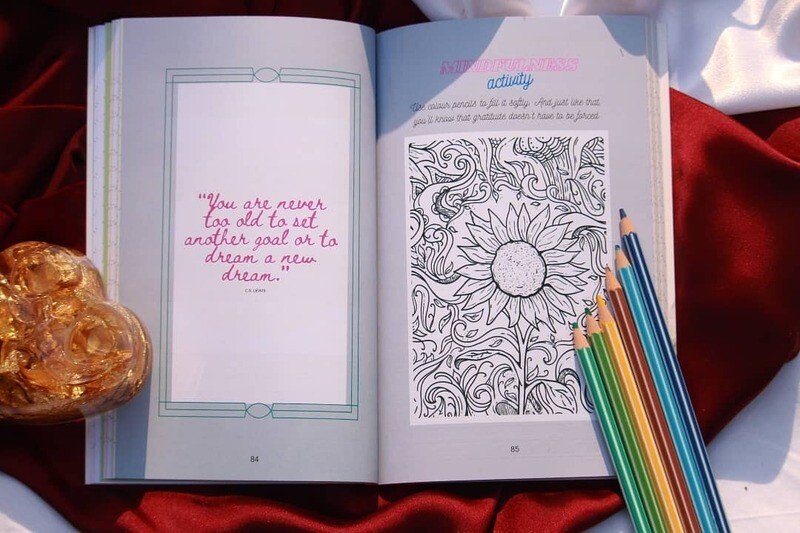 "You are never
too old to set
another goal or to
dream a new
dream."
C.S. LEWIS
84
MINDFULNESS
activity
Use colour pencils to fill it softly. And just like that,
you'll know that gratitude doesn't have to be forced.
85